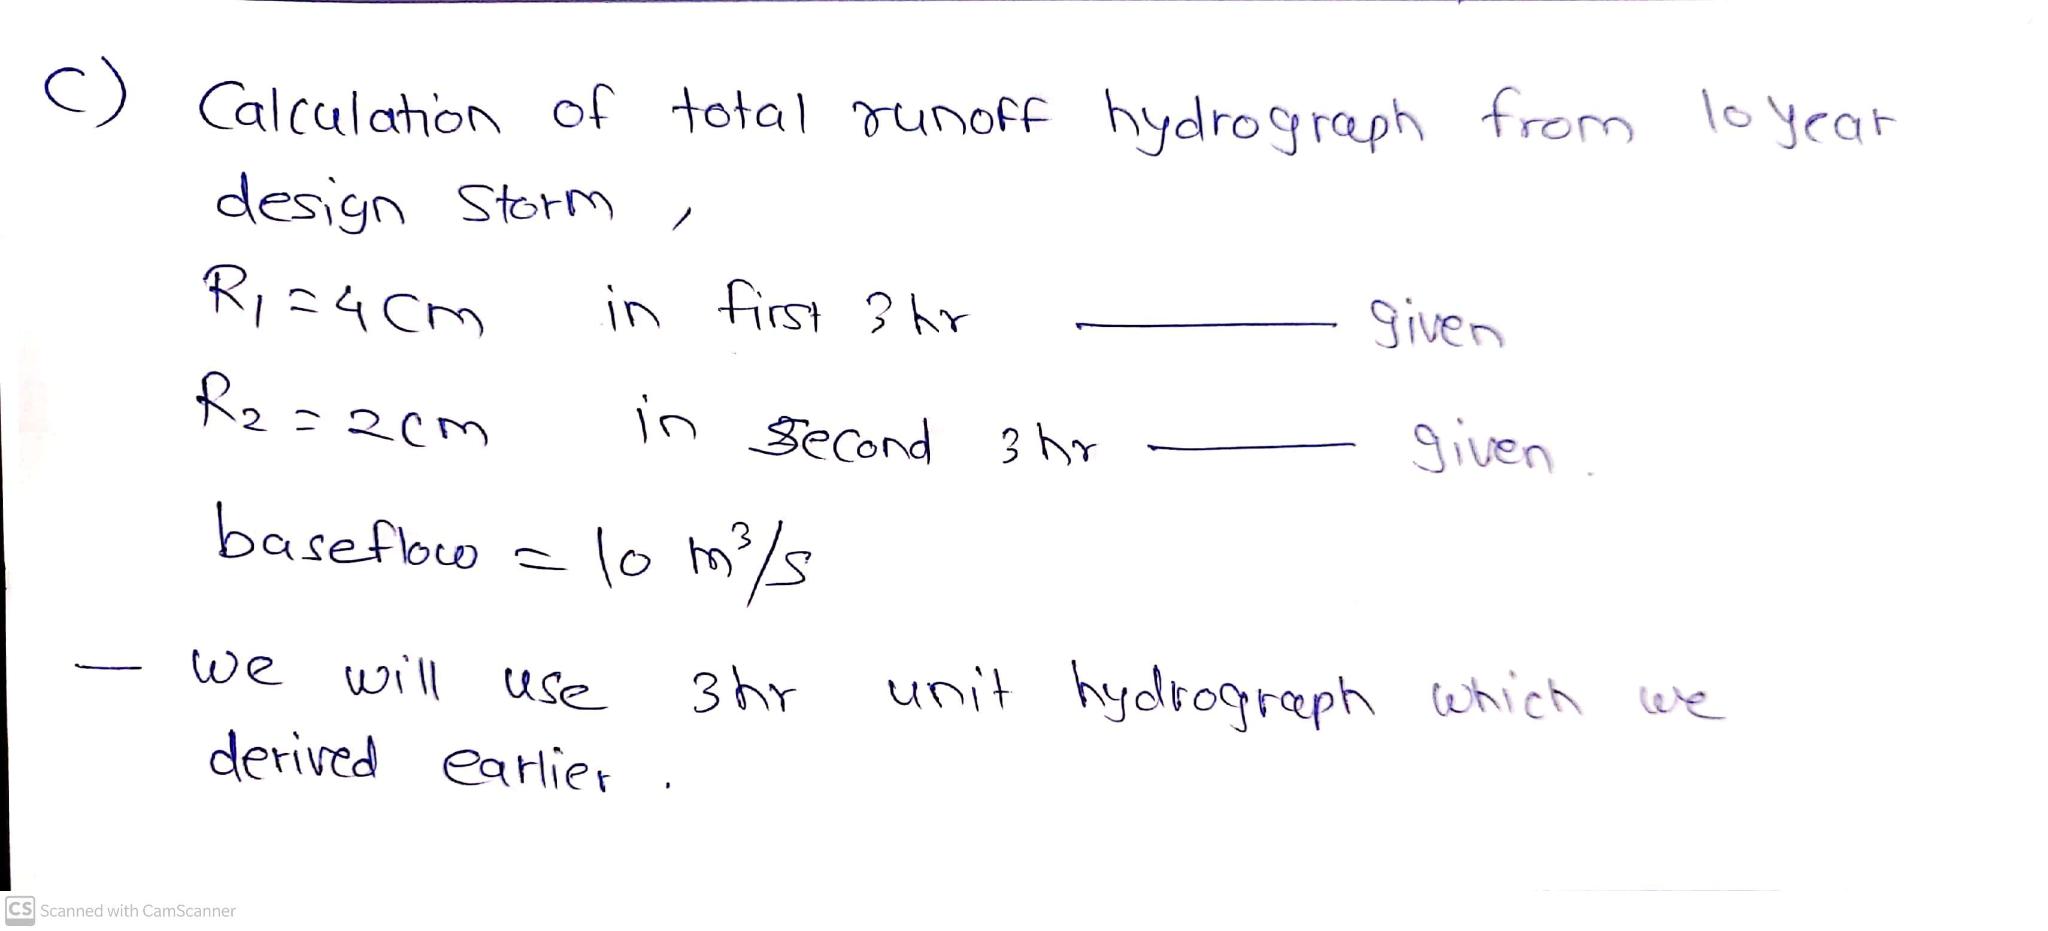 C) Calculation of total runoff hydrograph from 10 year
design storm,
R₁ = 4 cm in first 3 hr —— given
R₂ = 2 cm in second 3 hr —— given.
baseflow = 10 m³/s
— we will use 3hr unit hydrograph which we
derived earlier.
CS Scanned with CamScanner